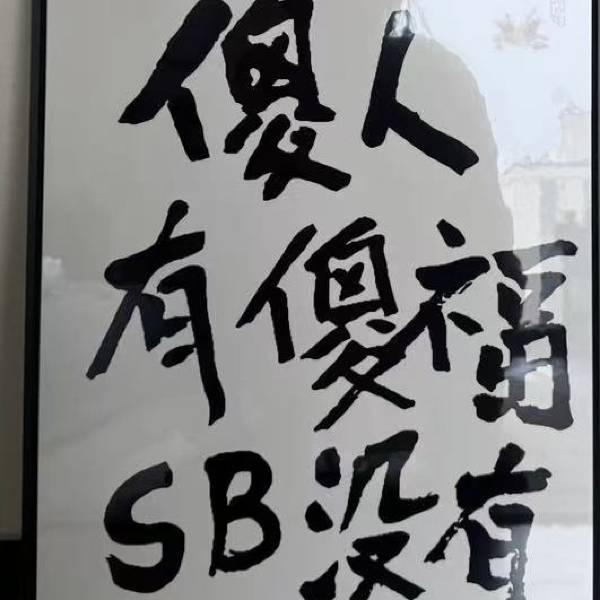 傻人
有傻福
SB没有